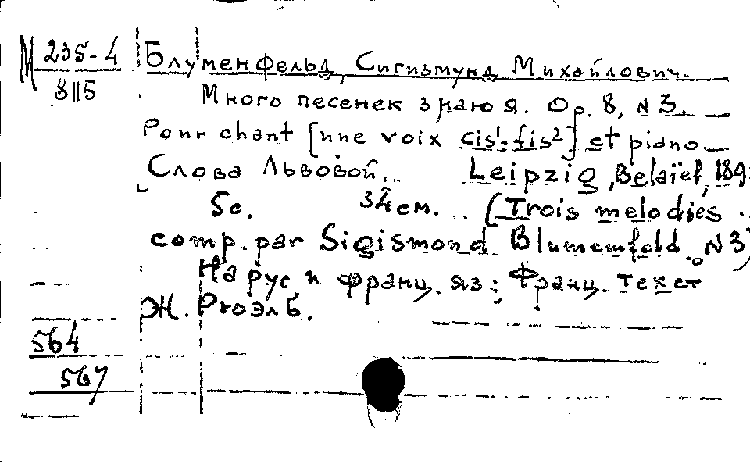 М 235-4 Блуменфельд, Сигизмунд Михайлович.
8115 Много песенек знаю я. Op. 8, N 3.
Pour chant [une voix cis¹-fis²] et piano
Слова Львовой. Leipzig, Belaïef, 189
5с. 34см. (Trois melodies
comp. par Sigismond Blumenfeld. N 3)
На рус и франц. яз; Франц. текст
Ж. Рюэль.
564
567